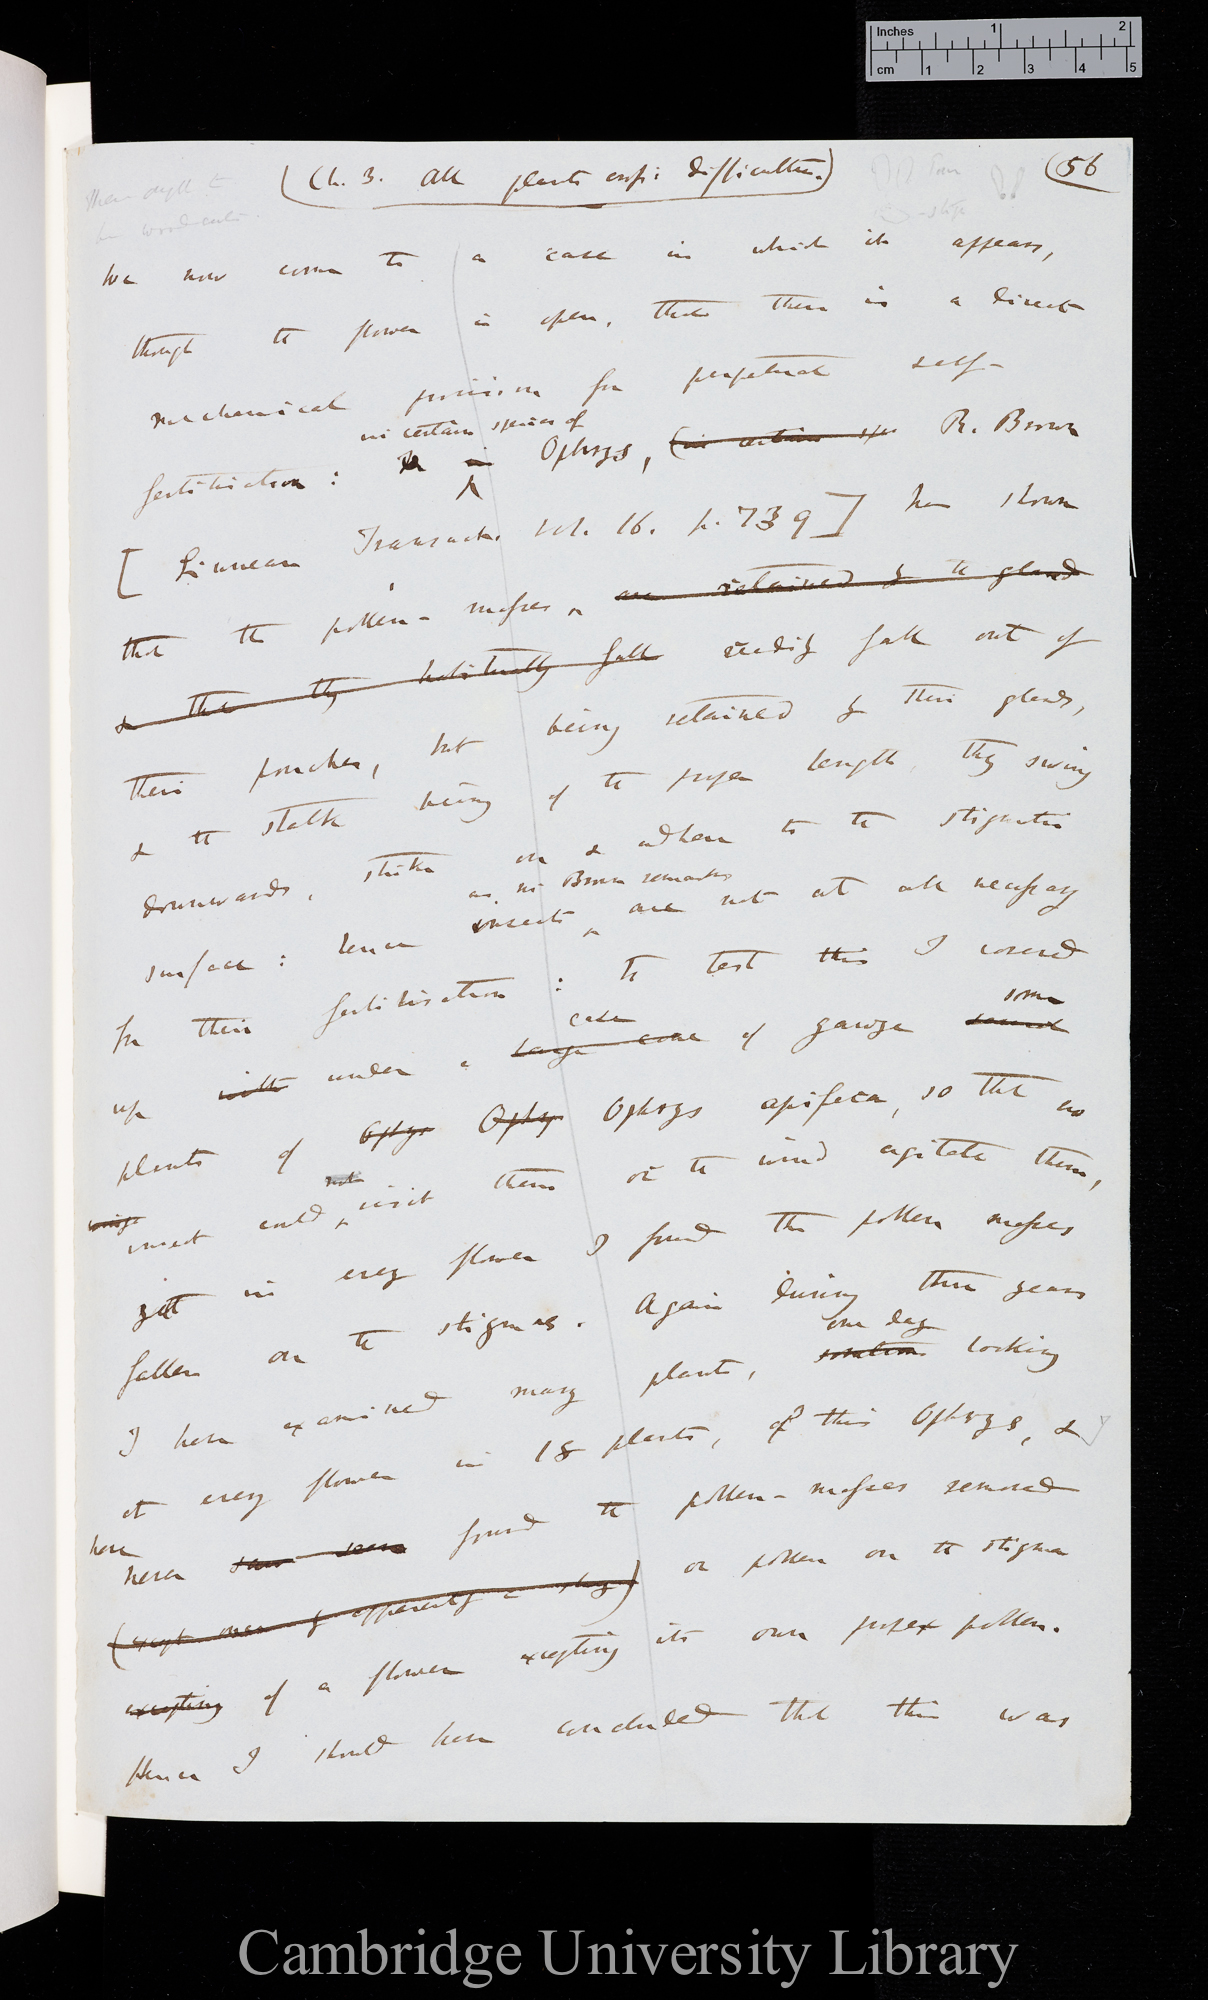 (Ch. 3. All plants cross: difficulties.)
(56
We now come to a case in which it appears,
though the flower is open, that there is a direct
mechanical provision for perpetual self-
in certain species of
fertilisation: in Ophrys, (in certain sp. R. Brown
[Linnean Transact. vol. 16. p. 739] has shown
that the pollen-masses, are retained by the gland
& that they habitually fall readily fall out of
their pouches, but being retained by their glands,
& the stalk being of the proper length, they swing
downwards, strike on & adhere to the stigmatic
as Mr Brown remarks
surface: hence insects are not at all necessary
for their fertilisation: to test this I covered
case some
up with under a large case of gauze several
plants of Ophys Ophry Ophrys apifera, so that no
not
insect could visit them or the wind agitate them,
yet in every flower I found the pollen masses
fallen on the stigmas. Again during three years
one day
I have examined many plants, sometimes looking
at every flower in 18 plants, of this Ophrys, &
have
never saw seen found the pollen-masses removed
(except once by apparently a slug) or pollen on the stigma
excepting of a flower excepting its own proper pollen.
Hence I should have concluded that this was
Inches 1 2
cm 1 2 3 4 5
Cambridge University Library